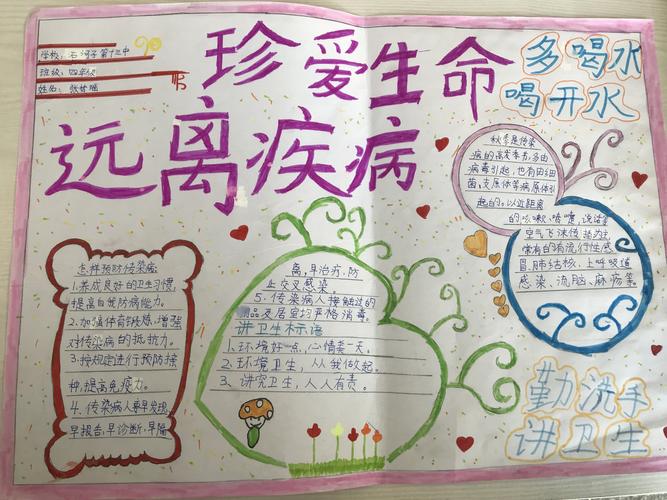 学校：石河子第十三中
班级：四年级
姓名：
珍爱生命
远离疾病
多喝水
喝开水
秋季是传染
病的高发季节，多由
病毒引起，也有由细
菌，支原体等病原体引
起的。以近距离
的咳嗽、喷嚏，说话等
空气飞沫传播为主
常有的有流行性感
冒、肺结核、上呼吸道
感染、流脑、麻疹等。
怎样预防传染病：
1.养成良好的卫生习惯，
提高自我防病能力。
2.加强体育锻炼，增强
对传染病的抵抗力。
3.按规定进行预防接
种，提高免疫力。
4.传染病人要早发现，
早报告，早诊断，早隔
离，早治疗，防
止交叉感染。
5.传染病人接触过的
用品及居室均严格消毒。
讲卫生标语
1、环境好一点，心情美一天。
2、环境卫生，从我做起。
3、讲究卫生，人人有责。
勤洗手
讲卫生